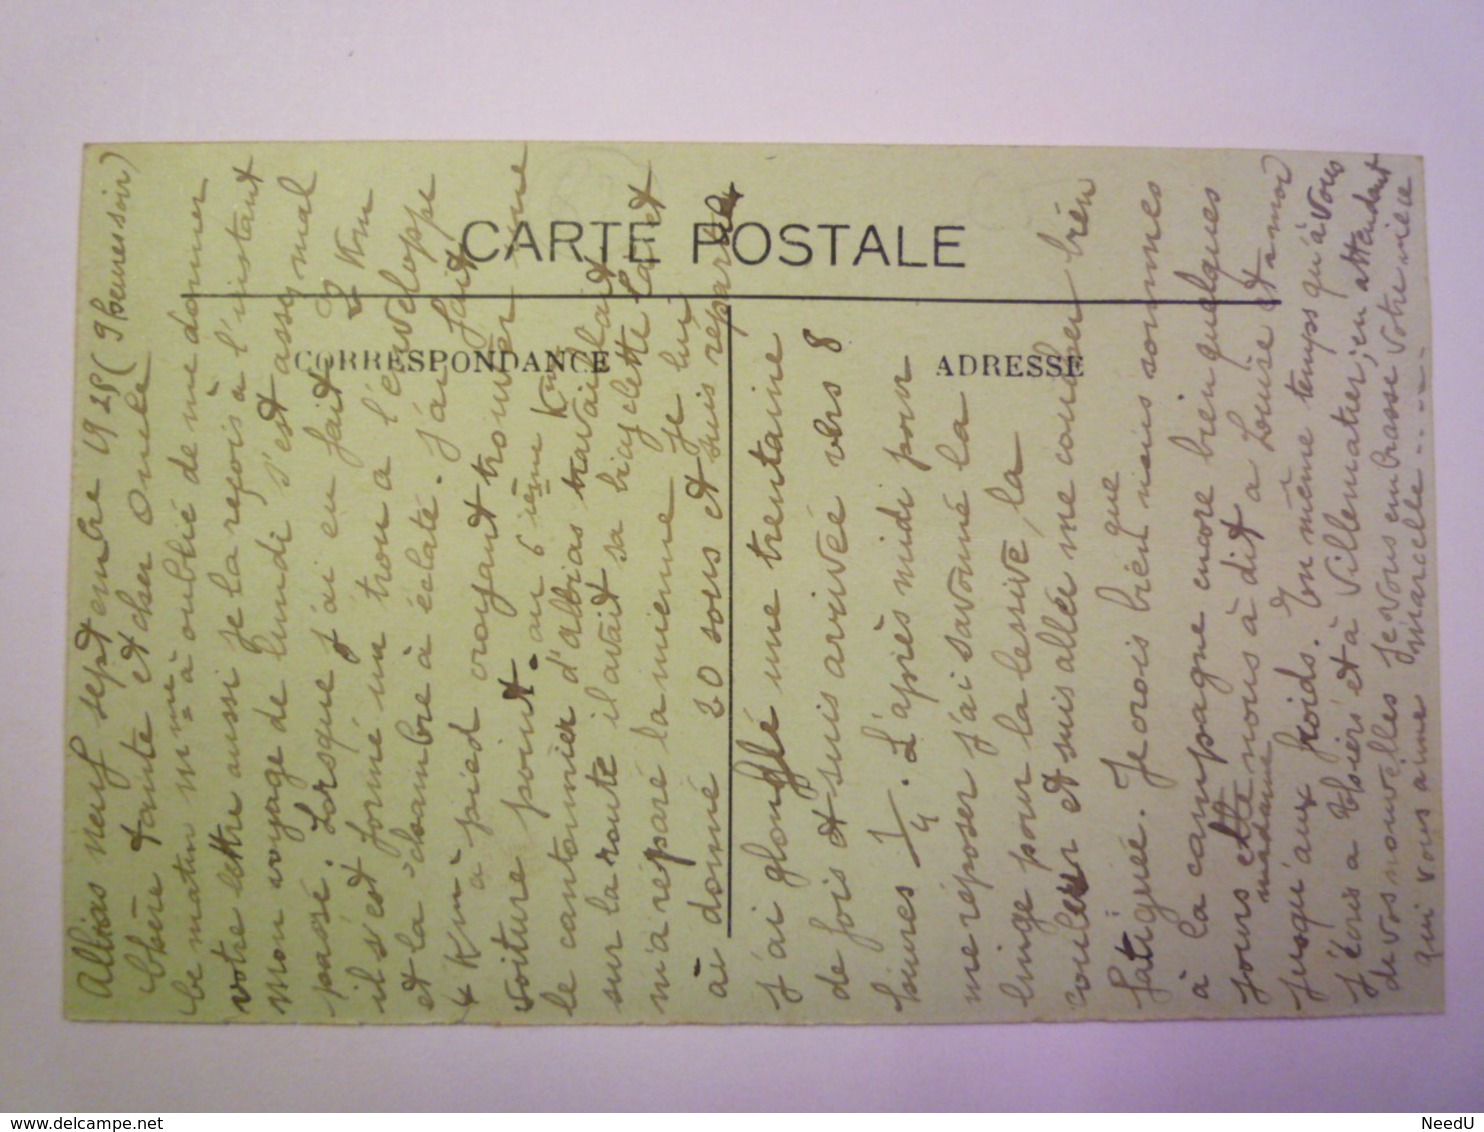 CARTE POSTALE
CORRESPONDANCE
ADRESSE
Albias neuf septembre 1925 (9 heures soir)
Chère tante et cher Oncle
Ce matin Mme à oublié de me donner
votre lettre aussi je la reçois à l'instant
Mon voyage de lundi s'est assez mal
passé. Lorsque j'ai eu fait 8 Km
il s'est formé un trou a l'enveloppe
et la chambre à éclaté. J'ai fait
4 Km à pied croyant trouver une
voiture point. au 6 ième Km
le cantonnier d'albias travaillait
sur la route il avait sa bicyclette la et
m'a réparé la mienne je lui
ai donné 20 sous et suis repartie
j'ai gonflé une trentaine
de fois et suis arrivée vers 8
heures 1/4. L'après midi pour
me reposer j'ai savonné la
linge pour la lessive, la
couler et suis allée me coucher bien
fatiguée. Je crois bien que nous sommes
à la campagne encore bien quelques
jours elle nous à dit a Louise et a moi
madame
jusqu'aux froids. En même temps qu'à vous
j'écris a et à Villematier; en attendant
de vos nouvelles je vous embrasse votre nièce
qui vous aime Marcelle
NeedU